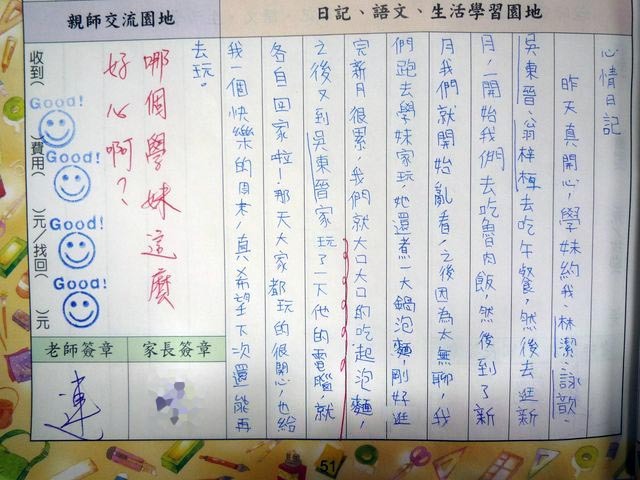 日記、語文、生活學習園地
心情日記
昨天真開心,學妹約我、林潔、詠歆、
吳東晉、翁梓梅去吃午餐,然後去逛新
月,一開始我們去吃魯肉飯,然後到了新
月我們就開始亂看,之後因為太無聊,我
們跑去學妹家玩,她還煮一大鍋泡麵,剛好逛
完新月很累,我們就大口大口的吃起泡麵,
之後又到吳東晉家玩了一下他的電腦,就
各自回家啦!那天大家都玩的很開心,也給
我一個快樂的周末,真希望下次還能再
去玩。
親師交流園地
哪個學妹這麼
好心啊?
Good!
Good!
Good!
Good!
收到( )費用( )元/找回( )元
家長簽章
老師簽章
連
51